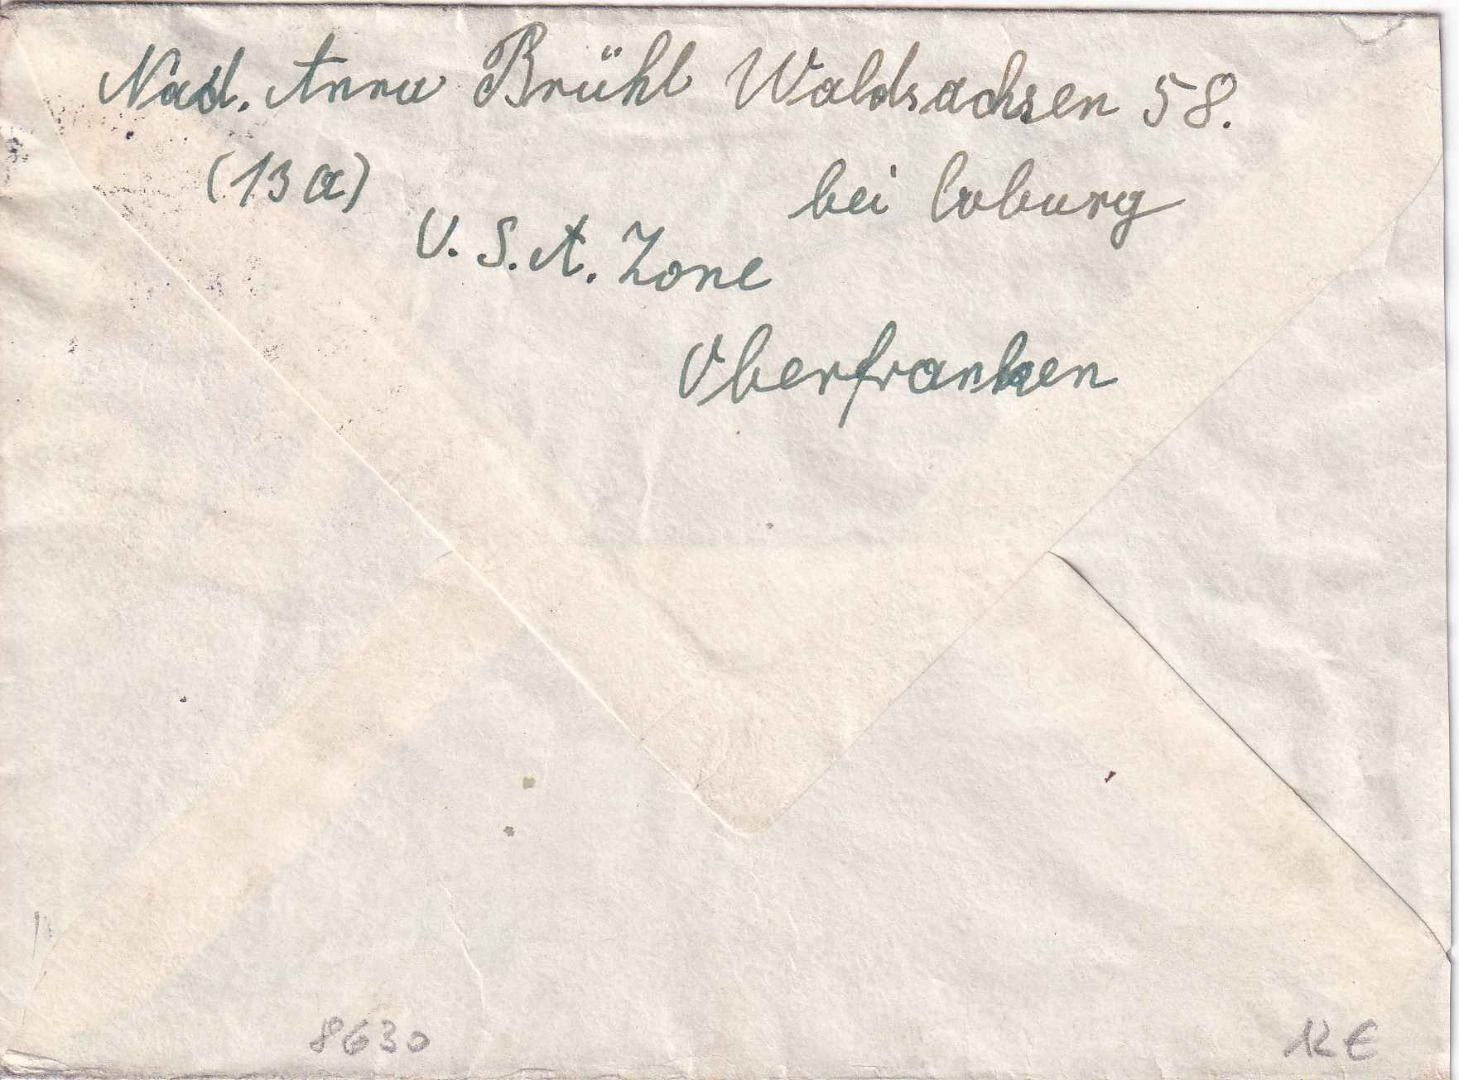 Nad. Anna Brühl Waldsachsen 58.
(13a) bei Coburg
U.S.A. Zone
Oberfranken
8630
12€